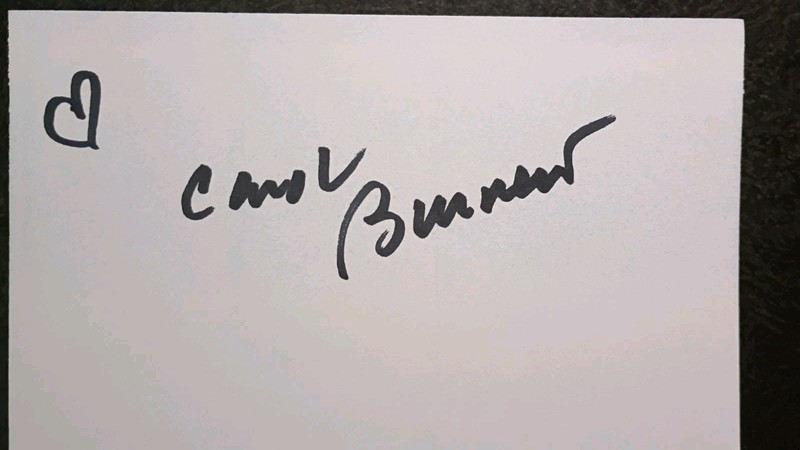 Carol
Burnett